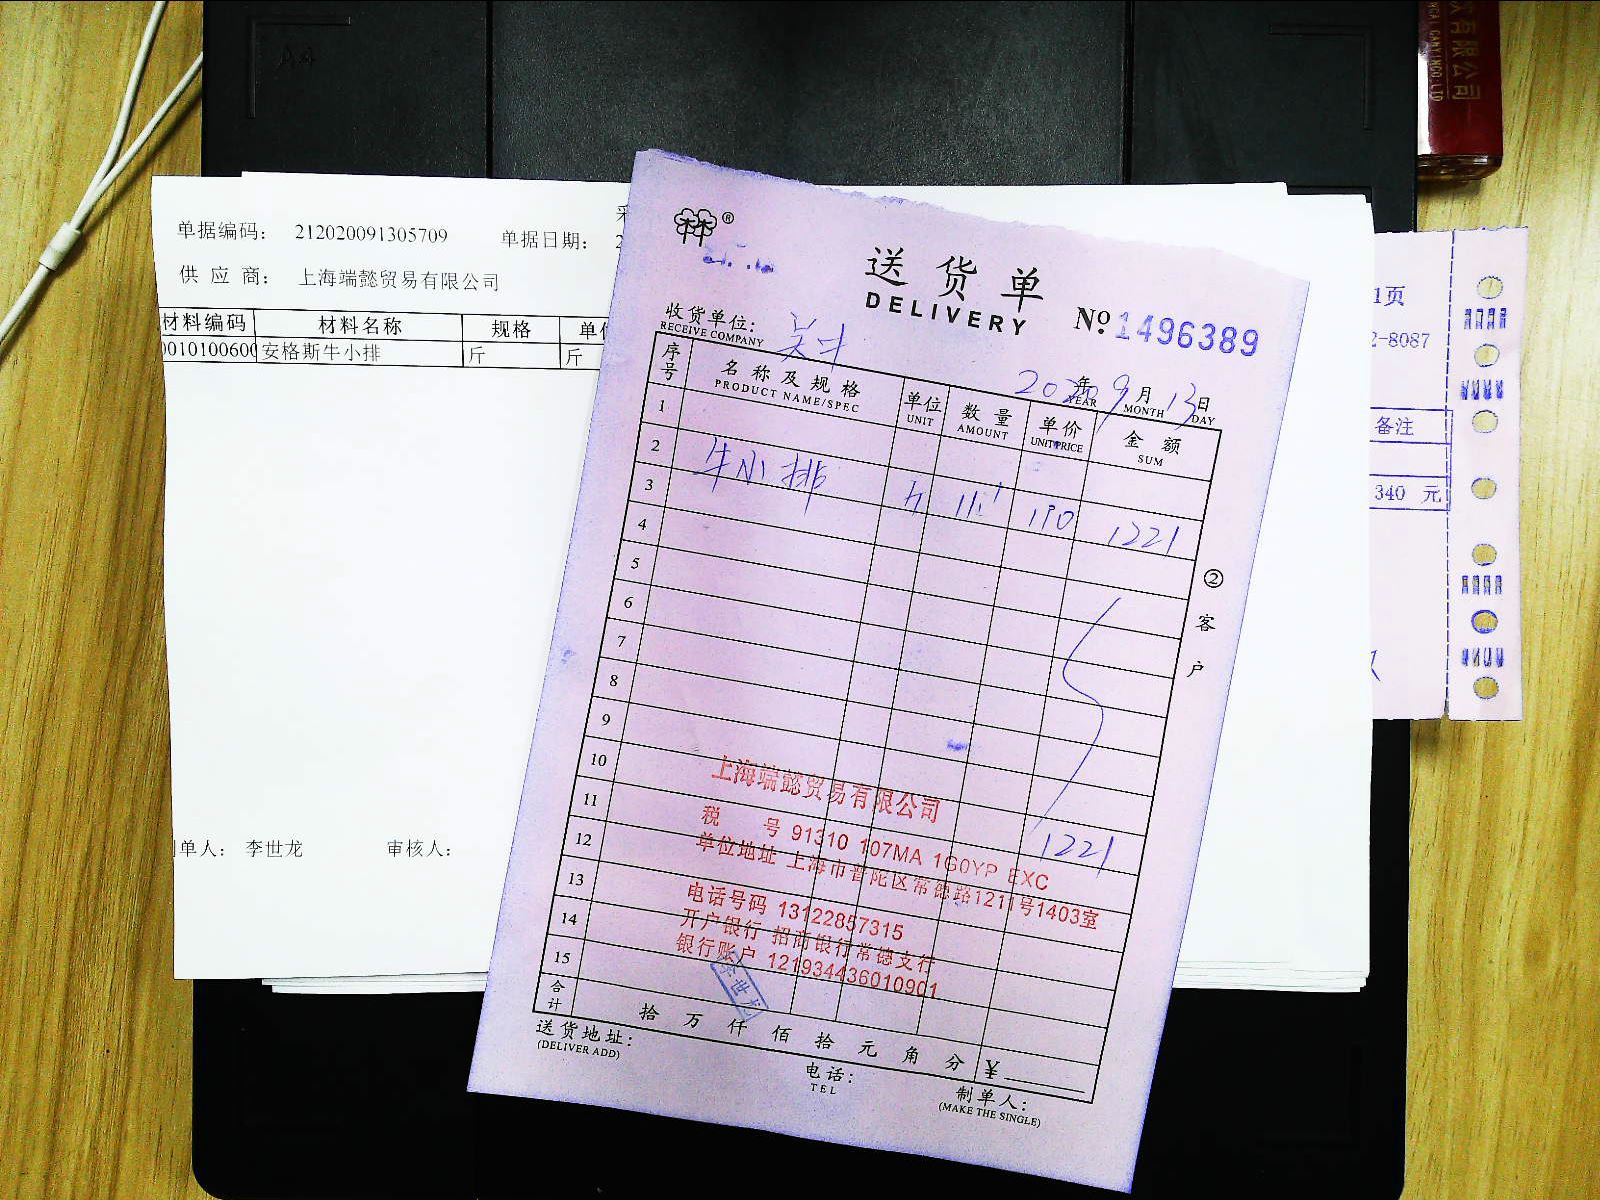 权有限公司
RCAI CANYINCO.,LTD
单据编码： 212020091305709 单据日期：
供 应 商： 上海端懿贸易有限公司
材料编码 材料名称 规格
0010100600 安格斯牛小排 斤 斤
制单人： 李世龙 审核人：
1页
2-8087
备注
340 元
送货单
DELIVERY
№ 1496389
收货单位：
RECEIVE COMPANY
2020 年 9 月 13 日
YEAR MONTH DAY
序号 名称及规格 单位 数量 单价 金额
PRODUCT NAME/SPEC UNIT AMOUNT UNIT PRICE SUM
1
2 牛小排 斤 11.1 110 1221
3
4
5
6
7
8
9
10
11
12 1221
13
14
15
② 客户
上海端懿贸易有限公司
税 号 91310 107MA 1G0YP EXC
单位地址 上海市普陀区常德路1211号1403室
电话号码 13122857315
开户银行 招商银行常德支行
银行账户 121934436010901
李世龙
合计 拾 万 仟 佰 拾 元 角 分 ¥
送货地址：
(DELIVER ADD)
电话：
TEL
制单人：
(MAKE THE SINGLE)